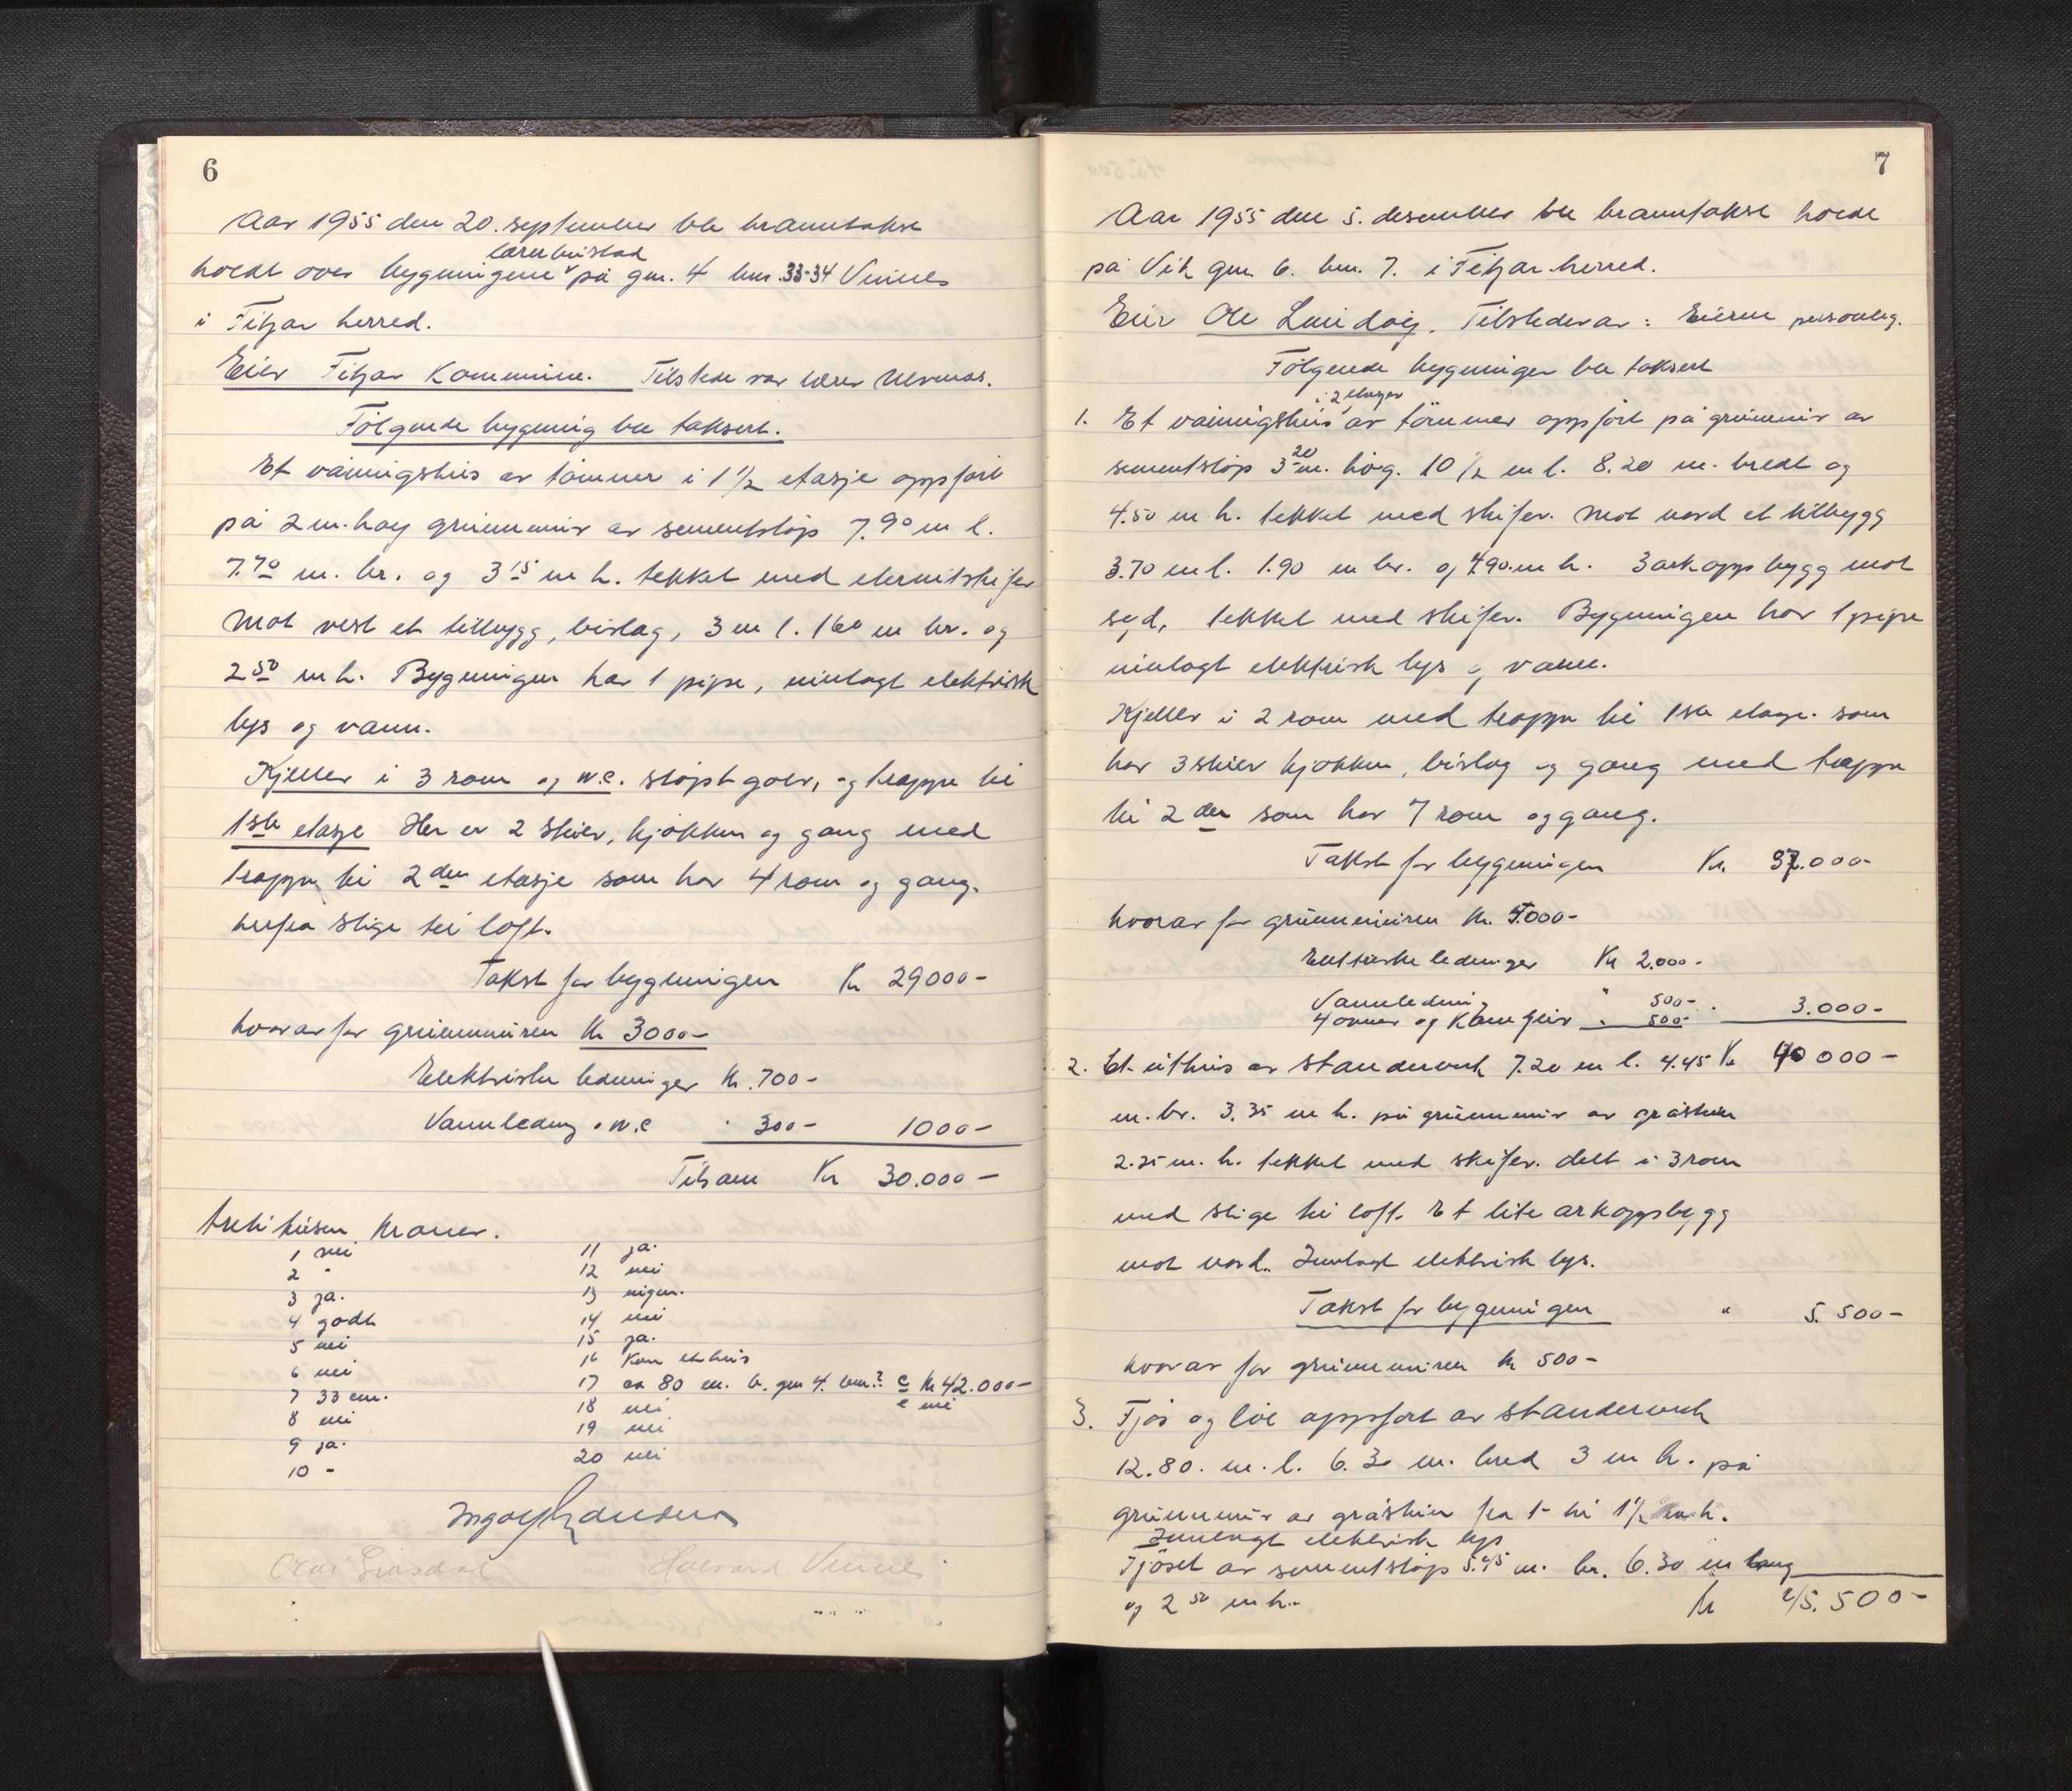 6
Aar 1955 den 20. september ble branntakse
lærerbustad
holdt over bygningene på gnr. 4 bnr. 33-34 Vinnes
i Fitjar herred.
Eier Fitjar Kommune. Tilstede var lærer
Følgende bygning ble taksert.
Et våningshus av tømmer i 1 1/2 etasje oppført
på 2 m. høy grunnmur av sementstøp 7.90 m l.
7.70 m. br. og 3 15 m h. tekket med eternitskifer
Mot vest et tilbygg, bislag, 3 m l. 160 m br. og
2 50 m h. Bygningen har 1 pipe, innlagt elektrisk
lys og vann.
Kjeller i 3 rom og w.c. støpt golv, og trappe til
1ste etasje Her er 2 stuer, kjøkken og gang med
trappe til 2 den etasje som har 4 rom og gang.
herfra stige til loft.
Takst for bygningen Kr 29000-
hvorav for grunnmuren Kr 3000-
Elektriske ledninger Kr. 700-
Vannledning o w.c " 300- 1000-
Tilsam Kr 30.000-
tretti tusen kroner.
1 nei
2 "
3 ja.
4 godt
5 nei
6 nei
7 33 cm.
8 nei
9 ja.
10 -
11 ja.
12 nei
13 ingen.
14 nei
15 ja.
16 Kun et hus
17 ca 80 m. b. gnr 4. bnr.? e Kr 42.000-
18 nei e nei
19 nei
20 nei
Halvard Vinnes
7
Aar 1955 den 5. desember ble branntakst holdt
på Vik gnr. 6. bnr. 7. i Fitjar herred.
Eier Ole Lundøy. Tilstede var: Eieren personleg.
Følgende bygninger ble taksert
i 2 etager
1. Et våningshus av tømmer oppført på grunnmur av
sementstøp 3 20 m. høg. 10 1/2 m l. 8.20 m. bredt og
4.50 m h. tekket med skifer. Mot nord et tilbygg
3.70 m l. 1.90 m br. og 4.90 m h. 3 arkoppbygg mot
syd, tekket med skifer. Bygningen har 1 pipe
innlagt elektrisk lys og vann.
Kjeller i 2 rom med trappe til 1ste etage. som
har 3 stuer kjøkken, bislag og gang med trappe
til 2 den som har 7 rom og gang.
Takst for bygningen Kr. 37.000-
hvorav for grunnmuren Kr. 5.000-
Elektriske ledninger Kr 2.000-
Vannledning " 500-
4 ovner og Kamfeir " 500- 3.000-
2. Et uthus av standerverk 7.20 m l. 4.45 Kr 40 000-
m. br. 3.35 m h. på grunnmur av gråstein
2.25 m. h. tekket med skifer. delt i 3 rom
med stige til loft. Et lite arkoppbygg
mot nord. Innlagt elektrisk lys.
Takst for bygningen " 5.500-
hvorav for grunnmuren kr 500-
3. Fjøs og løe oppført av standerverk
12.80. m. l. 6.30 m. bred 3 m h. på
grunnmur av gråstein fra 1- til 1 1/2 m h.
Innlagt elektrisk lys
Fjøset av sementstøp 5.45 m. br. 6.30 m lang
og 2 50 m h.. Kr 45.500-